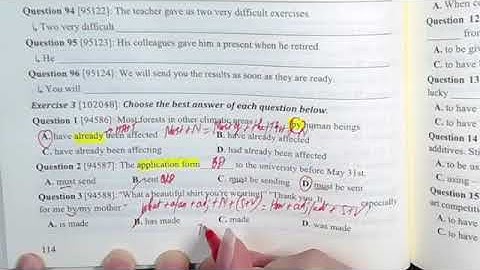 Question 94 [95122]: The teacher gave us two very difficult exercises.
↳ Two very difficult
Question 95 [95123]: His colleagues gave him a present when he retired.
↳ He
Question 96 [95124]: We will send you the results as soon as they are ready.
↳ You will
Exercise 3 [102048]: Choose the best answer of each question below.
Question 1 [94586]: Most forests in other climatic areas by human beings
A. have already been affected Most + N = Most of + the
B. have already affected
C. have already been affecting D. had already been affected
Question 2 [94587]: The application form BĐ to the university before May 31st.
A. must send B. sent C. must be sending D. must be sent
Question 3 [94588]: "What a beautiful shirt you're wearing!" "Thank you. It especially
for me by my mother." What + a/an + adj + N + (S+V) = How + adj/adv + S+V
A. is made B. has made C. made D. was made
114
A. When co
Question 12
A. to be giv
C. to have
Question 13
lucky
A. to have
C. to have
Question 14
additives. Sti
A. to have
C. to have
Question 15
art competit
A. to have
C. to have